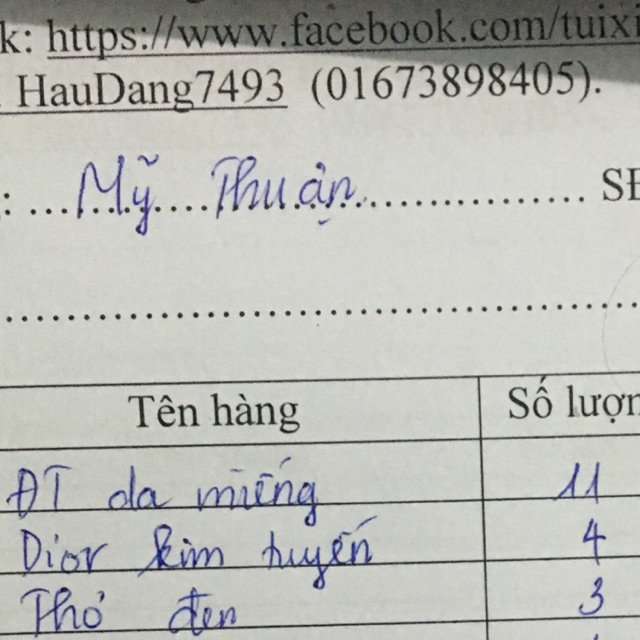 k: https://www.facebook.com/tuixi
HauDang7493 (01673898405).
: ... Mỹ Thuận ... SĐ
Tên hàng Số lượn
ĐT da miếng 11
Dior kim tuyến 4
Thỏ đen 3